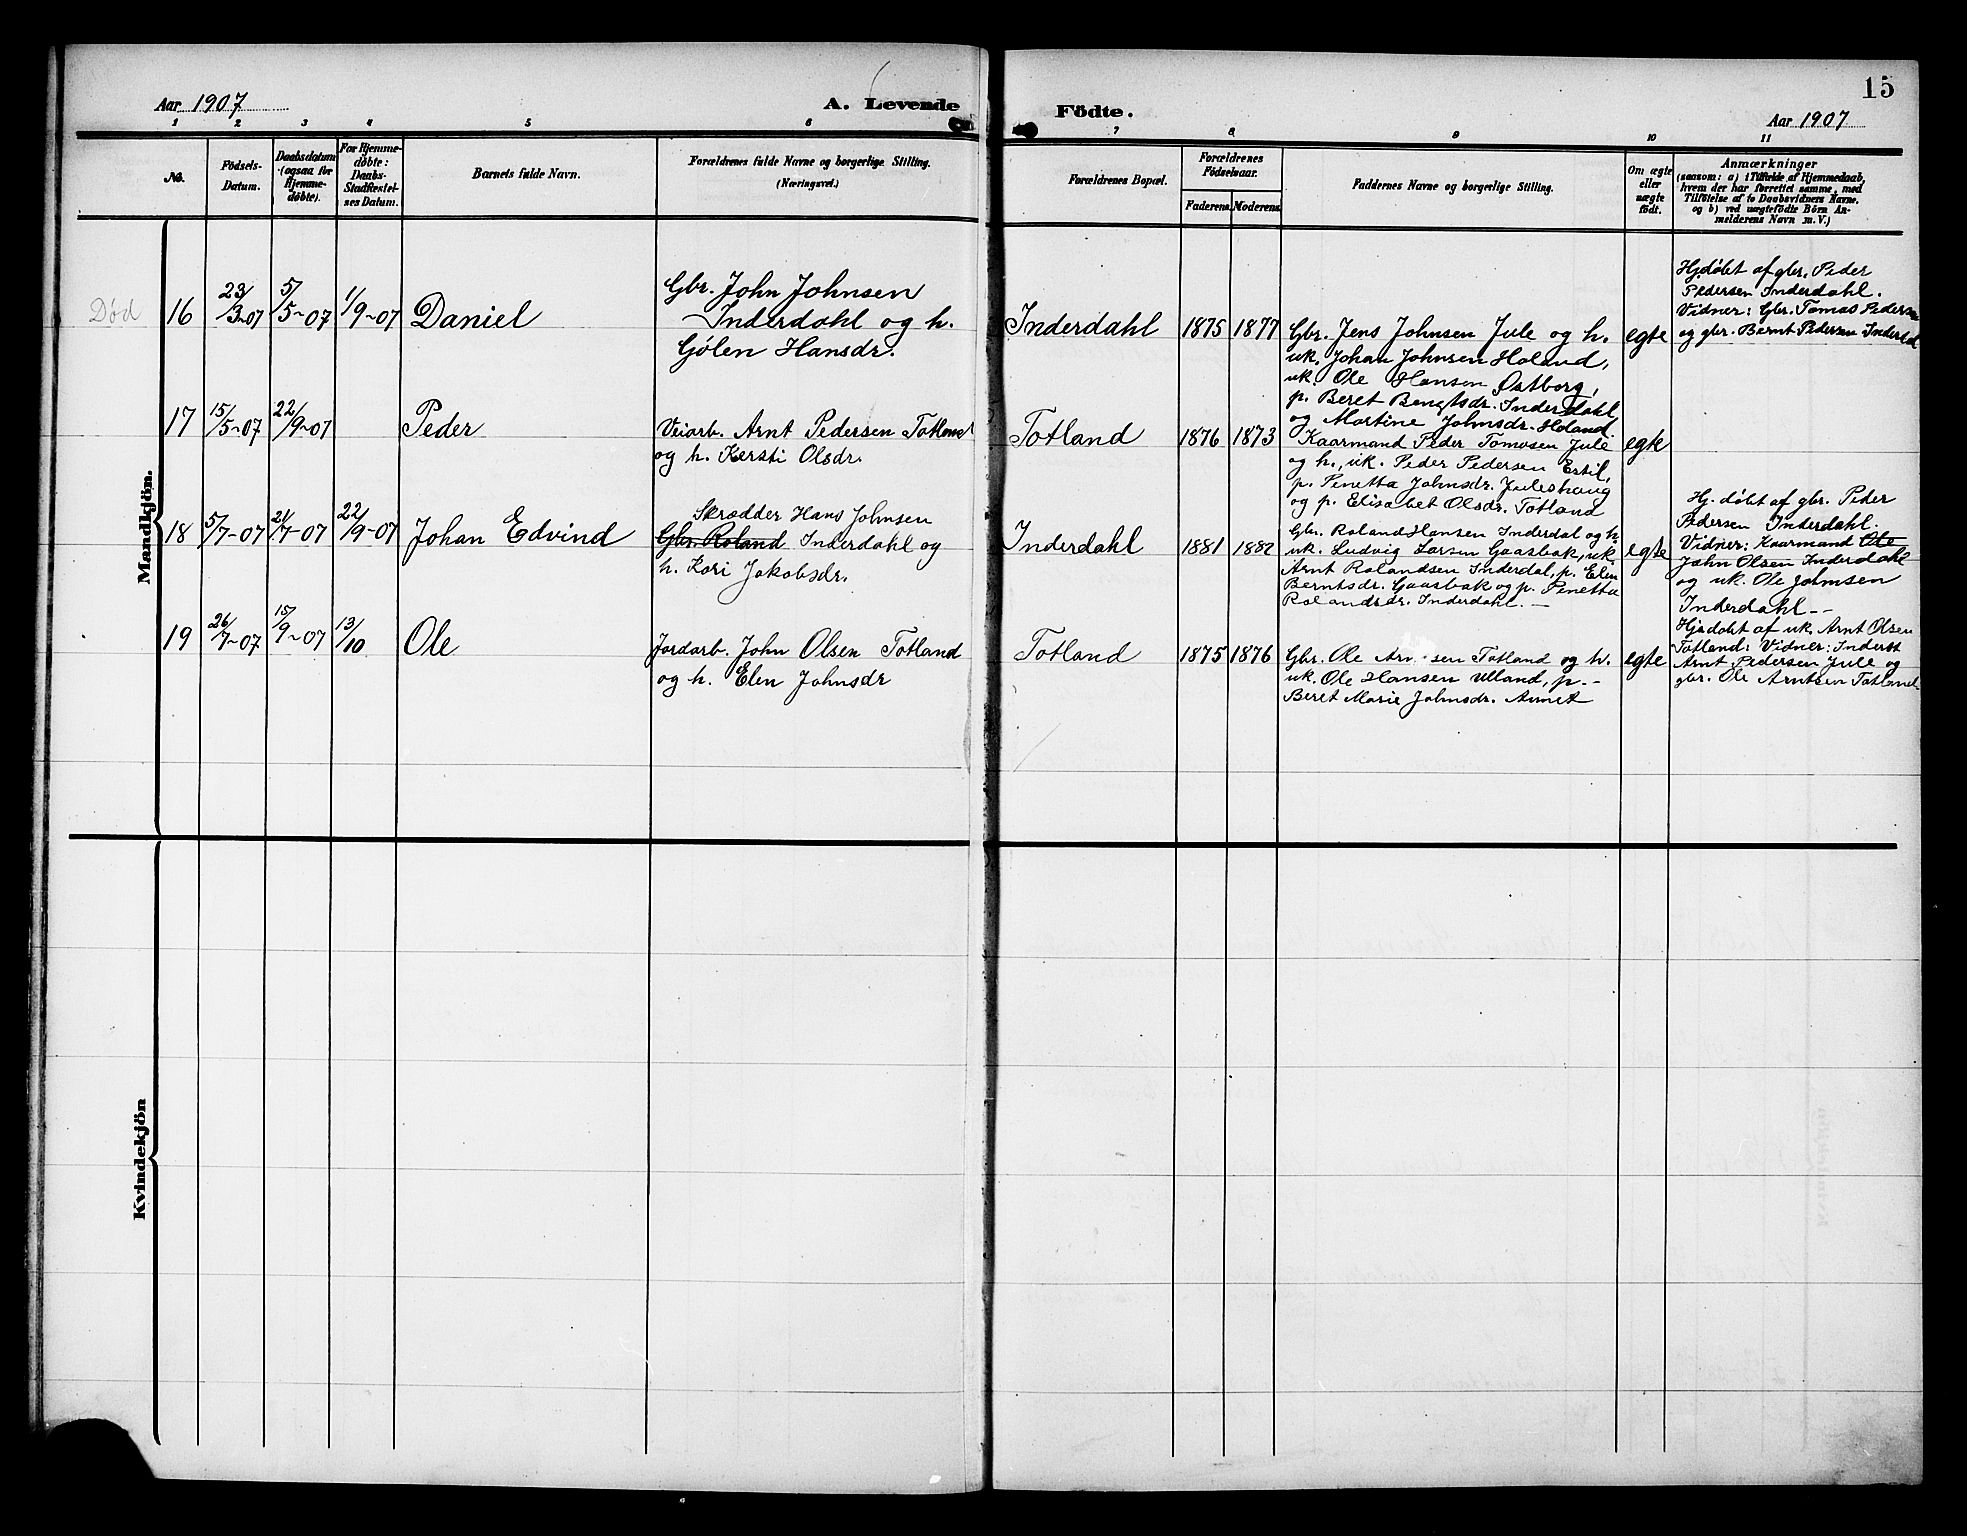 15
Aar 1907
A. Levende
Födte.
Aar 1907
1 2 3 4 5 6 7 8 9 10 11
No.
Födsels-
Datum.
Daabsdatum
(ogsaa for
Hjemme-
döbte).
For Hjemme-
döbte:
Daabs-
Stadfæstel-
ses Datum.
Barnets fulde Navn.
Forældrenes fulde Navne og borgerlige Stilling.
(Næringsvei.)
Forældrenes Bopæl.
Forældrenes
Födselsaar.
Faderens. Moderens.
Faddernes Navne og borgerlige Stilling.
Om ægte
eller
uægte
födt.
Anmærkninger
(saasom: a) i Tilfælde af Hjemmedaab,
hvem der har forrettet samme, med
Tilföielse af to Daabsvidners Navne.
og b) ved uægtefödte Börn An-
melderens Navn m. V.)
Mandkjön.
Død
16
23/3-07
5/5-07
1/9-07
Daniel
Gbr. John Johnsen
Inderdahl og h.
Gølen Hansdr.
Inderdahl
1875
1877
Gbr. Jens Johnsen Jule og h.
uk. Johan Johnsen Holand,
uk. Ole Hansen Østborg,
p. Beret Bengtsdr. Inderdahl
og Martine Johnsdr. Holand
egte
Hj.døbt af gbr. Peder
Pedersen Inderdahl.
Vidner: Gbr. Tomas Pedersen
og gbr. Bernt Pedersen Inderdal
17
15/5-07
22/9-07
Peder
Veiarb. Arnt Pedersen Totland
og h. Kersti Olsdr.
Totland
1876
1873
Kaarmand Peder Tomosen Jule
og h., uk. Peder Pedersen Estil,
p. Penetta Johnsdr. Juleshaug
og p. Elisabet Olsdr. Totland
egte
18
5/7-07
21/7-07
22/9-07
Johan Edvind
Skrædder Hans Johnsen
Gbr. Roland Inderdahl og
h. Kori Jakobsdr.
Inderdahl
1881
1882
Gbr. Roland Hansen Inderdal og h.
uk. Ludvig Larsen Gaasbak, uk.
Arnt Rolandsen Inderdal, p. Elen
Berntsdr. Gaasbak og p. Penetta
Rolandsdr. Inderdahl. -
egte
Hj. døbt af gbr. Peder
Pedersen Inderdahl.
Vidner: Kaarmand Ole
John Olsen Inderdahl
og uk. Ole Johnsen
Inderdahl--
19
26/7-07
15/9-07
13/10
Ole
Jordarb. John Olsen Totland
og h. Elen Johnsdr
Totland
1875
1876
Gbr. Ole Ar sen Totland og h.
uk. Ole Hansen Ulland, p. -
Beret Marie Johnsdr. Aunet
egte
Hj.døbt af uk. Arnt Olsen
Totland: Vidner: Inderst
Arnt Pedersen Jule og
gbr. Ole Arntsen Totland
Kvindekjön